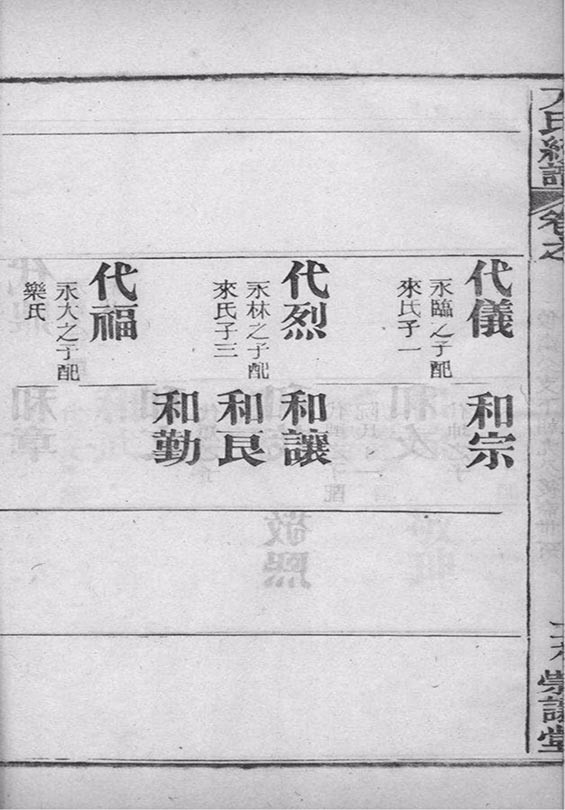 卷之
崇讓堂
代儀
永臨之子配
來氏子一
和宗
代烈
永林之子配
來氏子三
和讓
和良
和勤
代福
永大之子配
樂氏